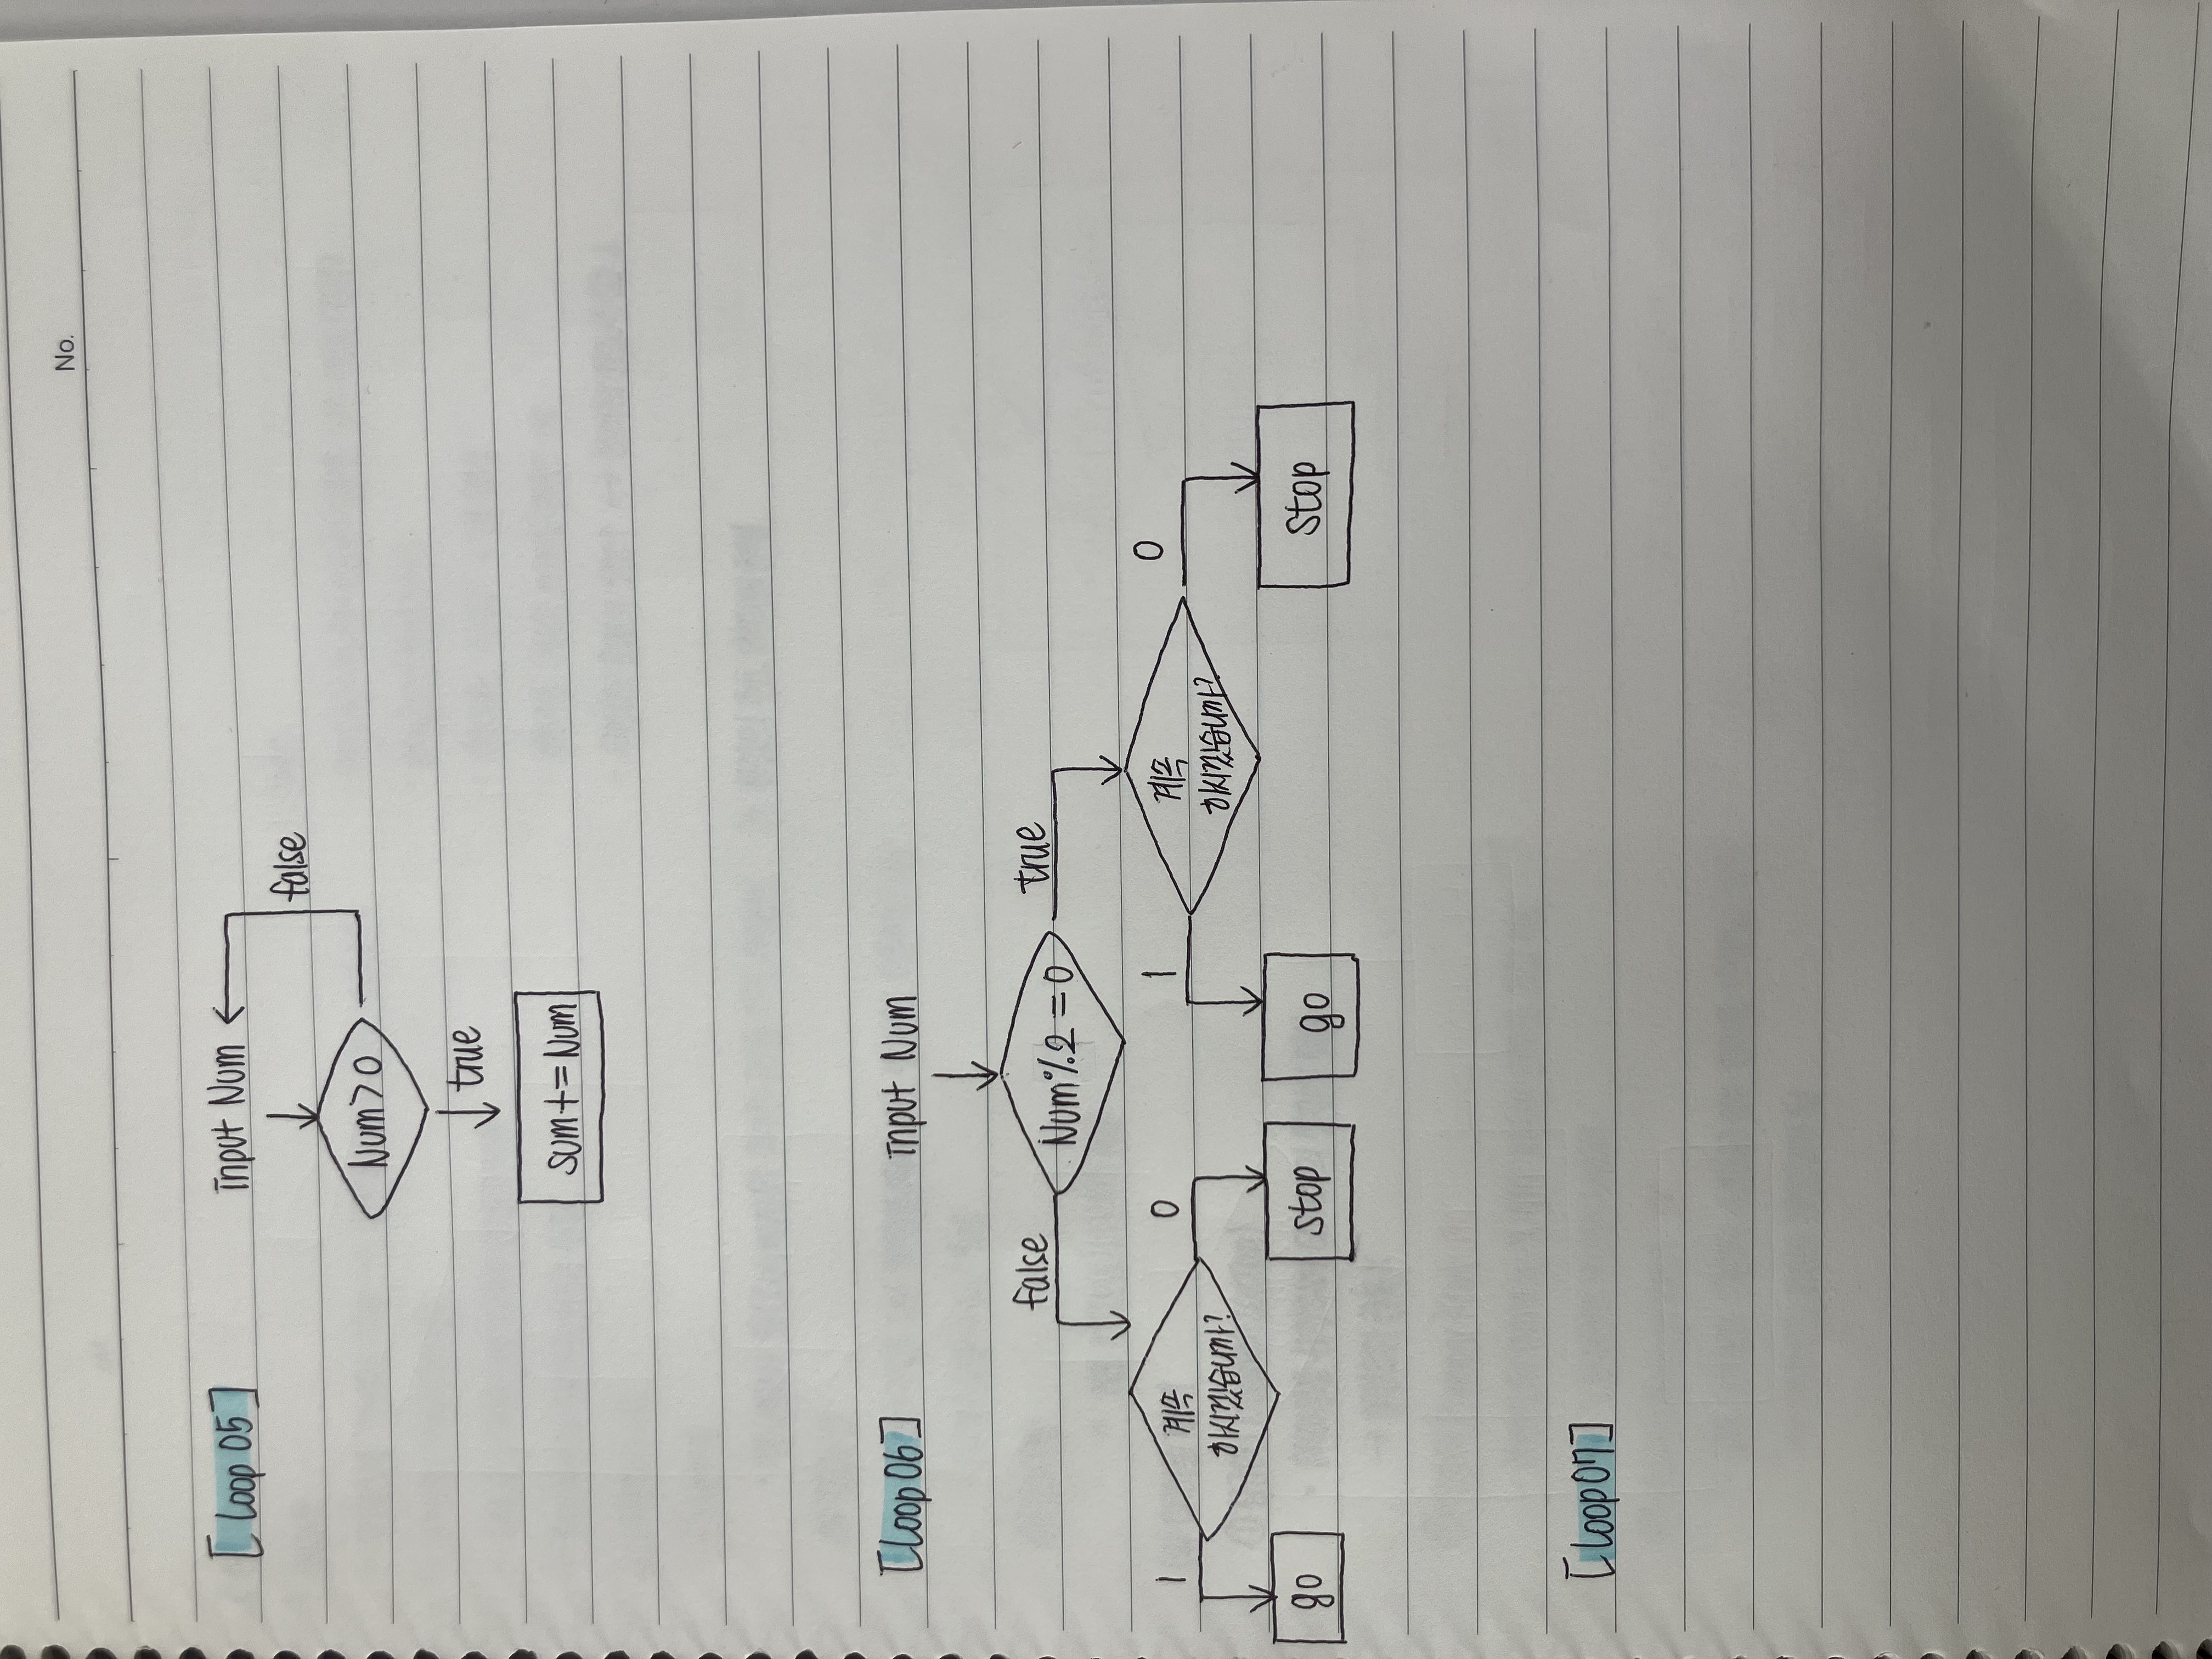 No.
[Loop 05]
input Num
false
Num>0
true
sum+=Num
[Loop 06]
input Num
false
Num%2=0
true
1
계속
하시겠습니까?
0
1
계속
하시겠습니까?
0
go
stop
go
stop
[Loop 07]